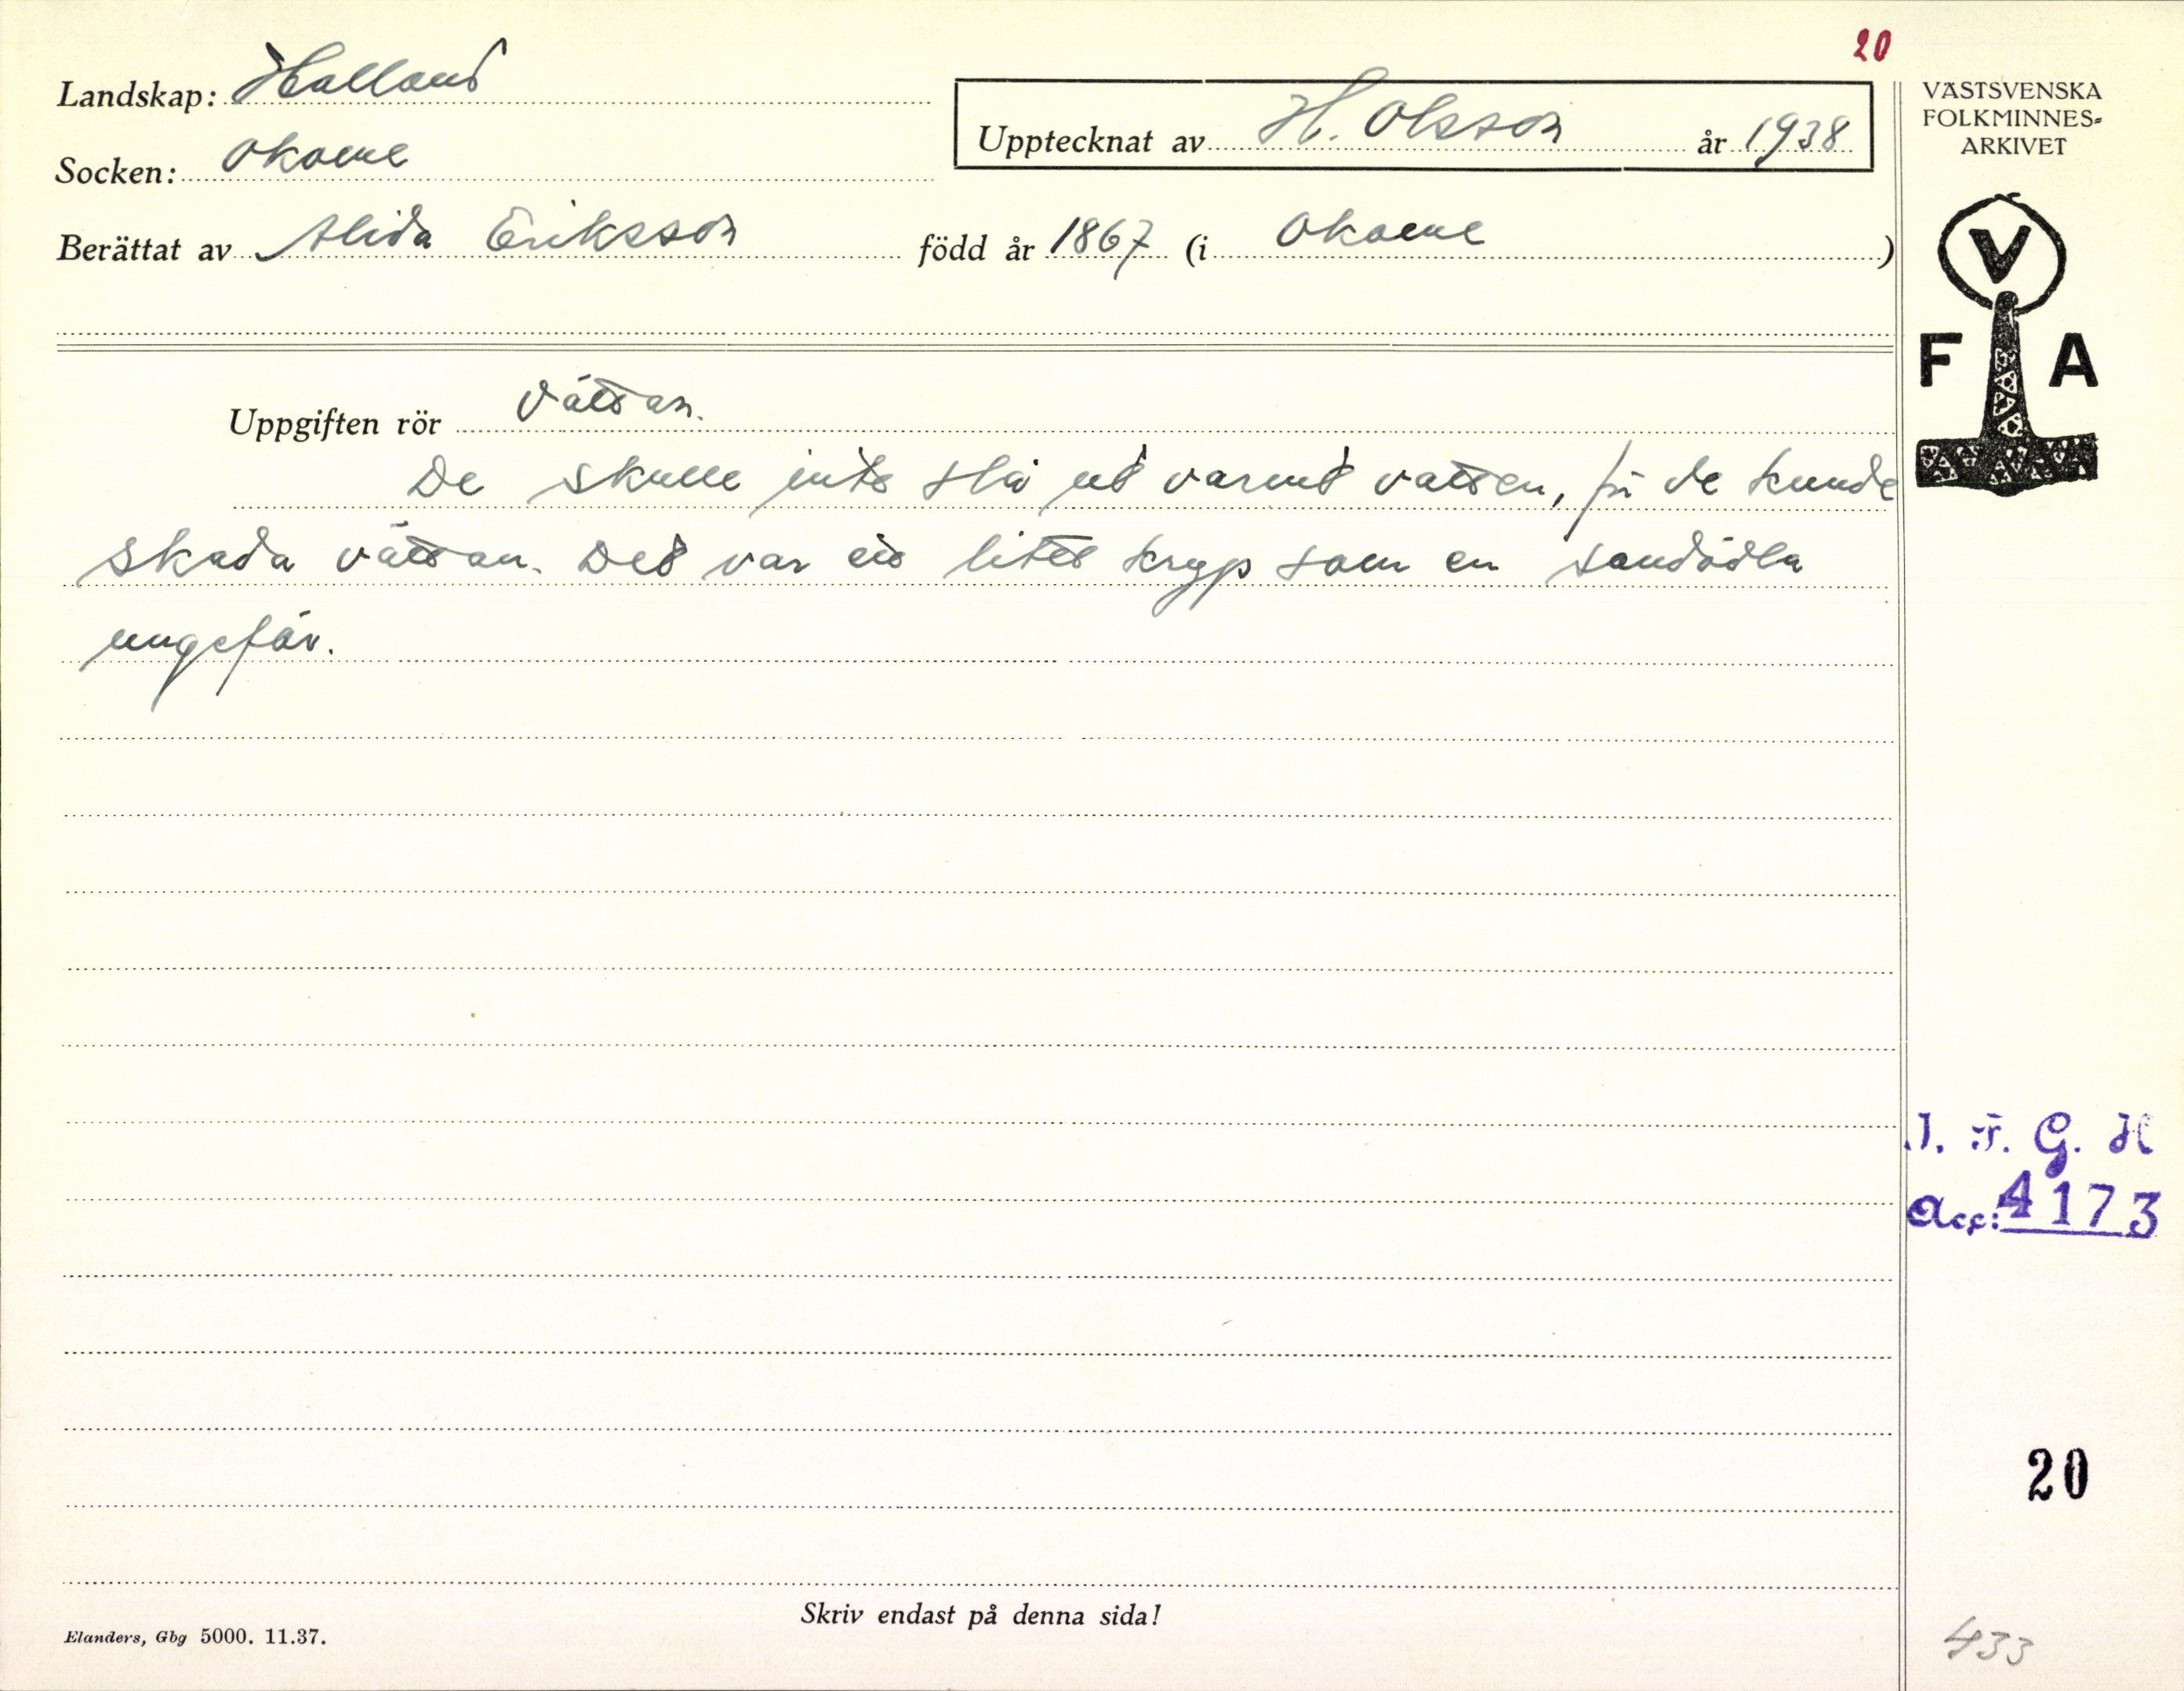 20
Landskap: Halland
Socken: Okome
Upptecknat av H. Olsson år 1938
Berättat av Alida Eriksson född år 1867 (i Okome )
VÄSTSVENSKA
FOLKMINNES-
ARKIVET
V
F A
Uppgiften rör Vättan.
De skulle inte slå ut varmt vatten, för de kunde
skada vättan. Det var ett litet kryp som en sandödla
ungefär.
I. F. G. H
Acc: 4173
20
Skriv endast på denna sida!
Elanders, Gbg 5000. 11.37.
433